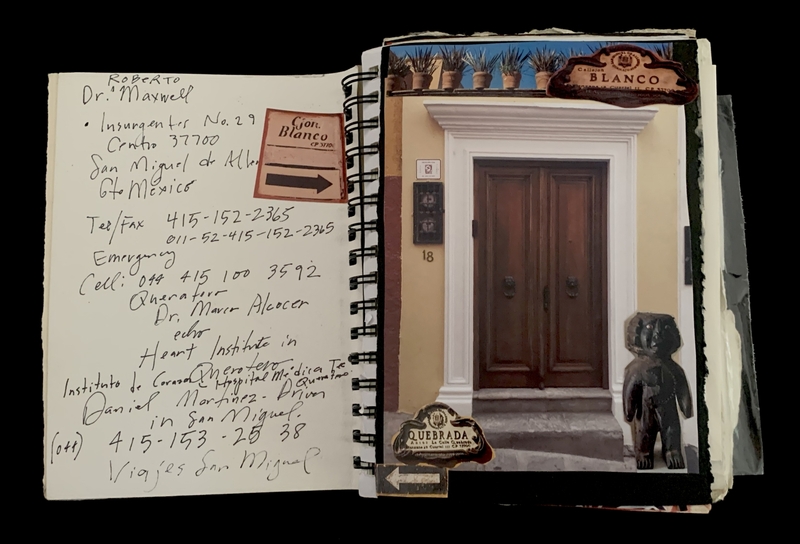 ROBERTO
Dr. Maxwell
• Insurgentes No. 29
Centro 37700
San Miguel de Allen
Gto Mexico
Tel/Fax 415-152-2365
011-52-415-152-2365
Emergency
Cell: 044 415 100 3592
Queratero
Dr. Marco Alcocer
echo
Heart Institute in
Queretero
Instituto de Corazon - Hospital Médica Tec
Queretaro
Daniel Martinez - Driver
in San Miguel.
(044) 415-153-25 38
Viajes San Miguel
Cjon.
Blanco
Callejon
BLANCO
18
QUEBRADA